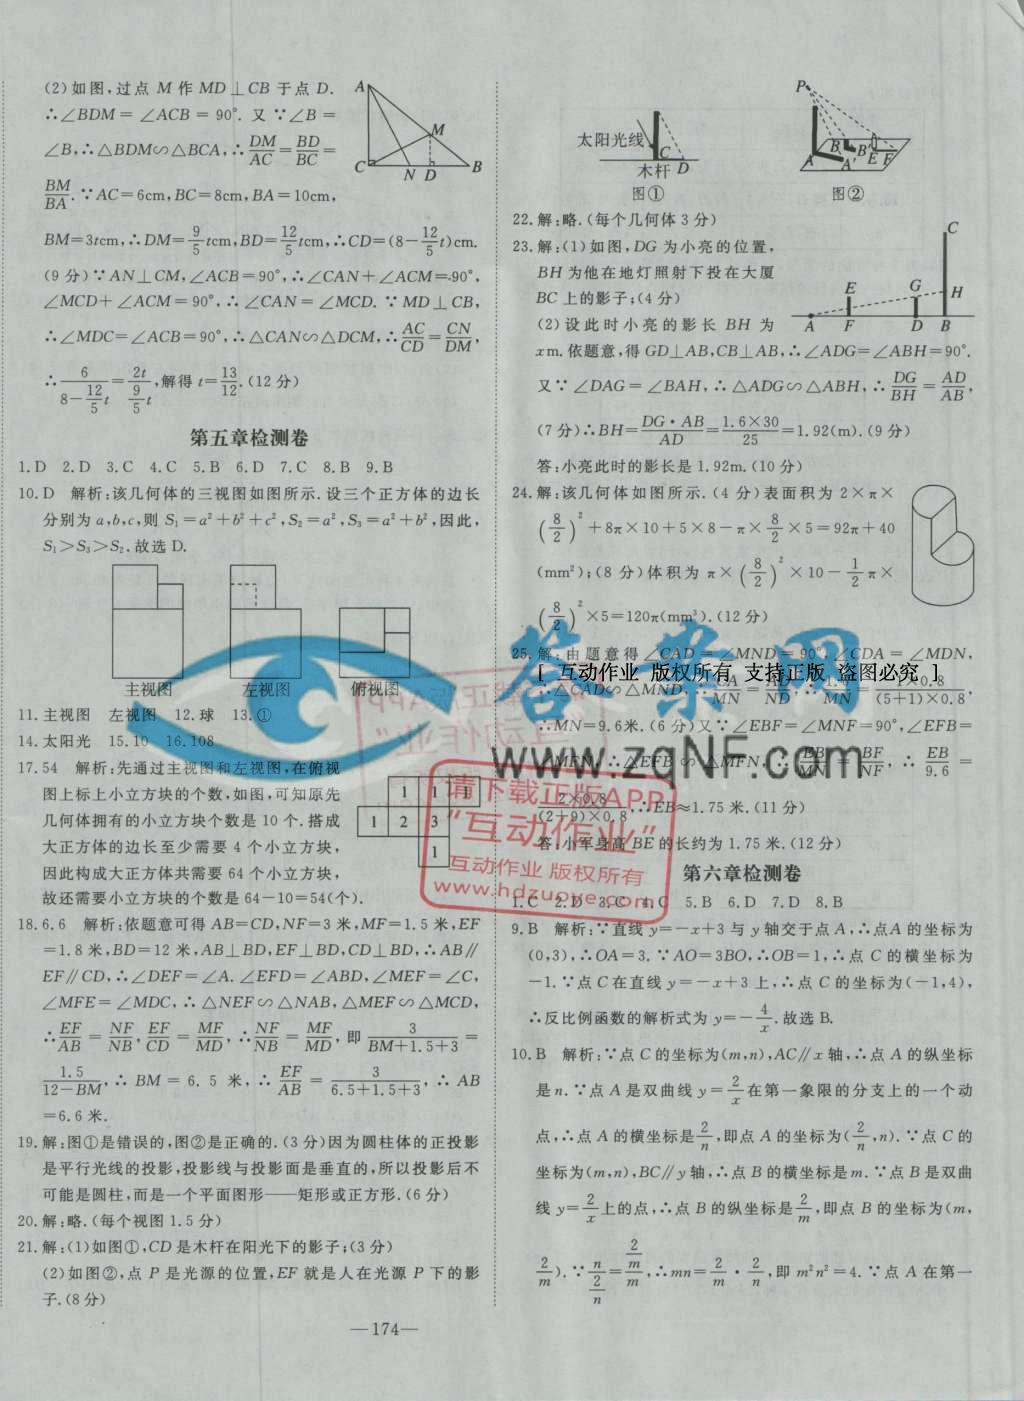 (2)如图,过点 M 作 MD⊥CB 于点 D.
∴∠BDM=∠ACB=90°. 又∵∠B=
∠B,∴△BDM∽△BCA,∴DM/AC=BD/BC=
BM/BA.∵AC=6cm,BC=8cm,BA=10cm,
BM=3tcm,∴DM=9/5tcm,BD=12/5tcm,∴CD=(8-12/5t)cm.
(9分)∵AN⊥CM,∠ACB=90°,∴∠CAN+∠ACM=90°.
∠MCD+∠ACM=90°,∴∠CAN=∠MCD.∵MD⊥CB,
∴∠MDC=∠ACB=90°,∴△CAN∽△DCM,∴AC/CD=CN/DM,
∴6/(8-12/5t)=2t/(9/5t),解得 t=13/12.(12分)
A
M
C
N D
B
第五章检测卷
1.D 2.D 3.C 4.C 5.B 6.D 7.C 8.B 9.B
10.D 解析:该几何体的三视图如图所示.设三个正方体的边长
分别为 a,b,c,则 S₁=a²+b²+c²,S₂=a²,S₃=a²+b²,因此,
S₁>S₃>S₂.故选 D.
主视图 左视图 俯视图
11.主视图 左视图 12.球 13.①
14.太阳光 15.10 16.108
17.54 解析:先通过主视图和左视图,在俯视
图上标上小立方块的个数,如图,可知原先
几何体拥有的小立方块个数是 10 个.搭成
大正方体的边长至少需要 4 个小立方块,
因此构成大正方体共需要 64 个小立方块,
故还需要小立方块的个数是 64-10=54(个).
1 1 1
1 2 3
1
18.6.6 解析:依题意可得 AB=CD,NF=3 米,MF=1.5 米,EF
=1.8 米,BD=12 米,AB⊥BD,EF⊥BD,CD⊥BD,∴AB∥
EF∥CD,∴∠DEF=∠A.∠EFD=∠ABD,∠MEF=∠C,
∠MFE=∠MDC,∴△NEF∽△NAB,△MEF∽△MCD,
∴EF/AB=NF/NB,EF/CD=MF/MD,∴NF/NB=MF/MD,即3/(BM+1.5+3)=
1.5/(12-BM),∴BM=6.5 米,∴EF/AB=3/(6.5+1.5+3),∴AB
=6.6 米.
19.解:图①是错误的,图②是正确的.(3分)因为圆柱体的正投影
是平行光线的投影,投影线与投影面是垂直的,所以投影后不
可能是圆柱,而是一个平面图形——矩形或正方形.(6分)
20.解:略.(每个视图1.5分)
21.解:(1)如图①,CD 是木杆在阳光下的影子;(3分)
(2)如图②,点 P 是光源的位置,EF 就是人在光源 P 下的影
子.(8分)
太阳光线
C
木杆 D
图①
P
A B B' A' E F
图②
22.解:略.(每个几何体3分)
23.解:(1)如图,DG 为小亮的位置,
BH 为他在地灯照射下投在大厦
BC 上的影子;(4分)
(2)设此时小亮的影长 BH 为
xm.依题意,得 GD⊥AB,CB⊥AB,∴∠ADG=∠ABH=90°.
又∵∠DAG=∠BAH,∴△ADG∽△ABH,∴DG/BH=AD/AB,
(7分)∴BH=DG·AB/AD=1.6×30/25=1.92(m).(9分)
答:小亮此时的影长是 1.92m.(10分)
C
E G H
A F D B
24.解:该几何体如图所示.(4分)表面积为 2×π×
(8/2)²+8π×10+5×8-π×8/2×5=92π+40
(mm²);(8分)体积为 π×(8/2)²×10-1/2π×
(8/2)²×5=120π(mm³).(12分)
25.解:由题意得∠CAD=∠MND=90°,∠CDA=∠MDN,
∴△CAD∽△MND,∴CA/MN=AD/ND,∴1.6/MN=1×0.8/((5+1)×0.8),
∴MN=9.6米.(6分)又∵∠EBF=∠MNF=90°,∠EFB=
∠MFN,∴△EFB∽△MFN,∴EB/MN=BF/NF,∴EB/9.6=
2×0.8/((2+9)×0.8),∴EB≈1.75 米.(11分)
答:小军身高 BE 的长约为 1.75 米.(12分)
第六章检测卷
1.C 2.D 3.C 4.C 5.B 6.D 7.D 8.B
9.B 解析:∵直线 y=-x+3 与 y 轴交于点 A,∴点A 的坐标为
(0,3),∴OA=3.∵AO=3BO,∴OB=1,∴点 C 的横坐标为
-1.∵点 C 在直线 y=-x+3 上,∴点 C 的坐标为(-1,4),
∴反比例函数的解析式为 y=-4/x.故选 B.
10.B 解析:∵点 C 的坐标为(m,n),AC∥x 轴,∴点 A 的纵坐标
是n.∵点 A 是双曲线 y=2/x在第一象限的分支上的一个动
点,∴点 A 的横坐标是2/n,即点 A 的坐标为(2/n,n).∵点 C 的
坐标为(m,n),BC∥y 轴,∴点 B 的横坐标是m.∵点 B 是双曲
线 y=2/x上的点,∴点 B 的纵坐标是2/m,即点 B 的坐标为(m,
2/m).∵n/(2/n)=(2/m)/m,∴mn=2/m·2/n,即 m²n²=4.∵点 A 在第一
—174—
答案网
www.zqNF.com
[ 互动作业 版权所有 支持正版 盗图必究 ]
请下载正版APP
"互动作业"
互动作业 版权所有
www.hdzuoye.com